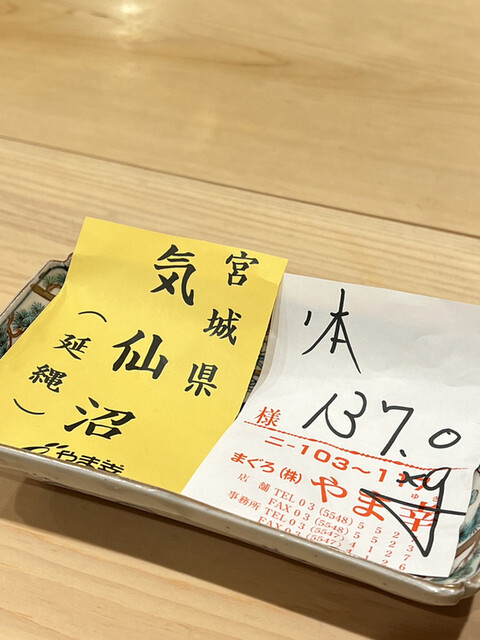 宮城県
気仙沼
(延縄)
やま幸
体
137.0
kg
様
ニ-103~1
まぐろ(株)やま幸
ゆき
店舗 TEL 03(5548)5523
FAX 03(5548)5
事務所 TEL 03(5547)4
FAX 03(5547)4126